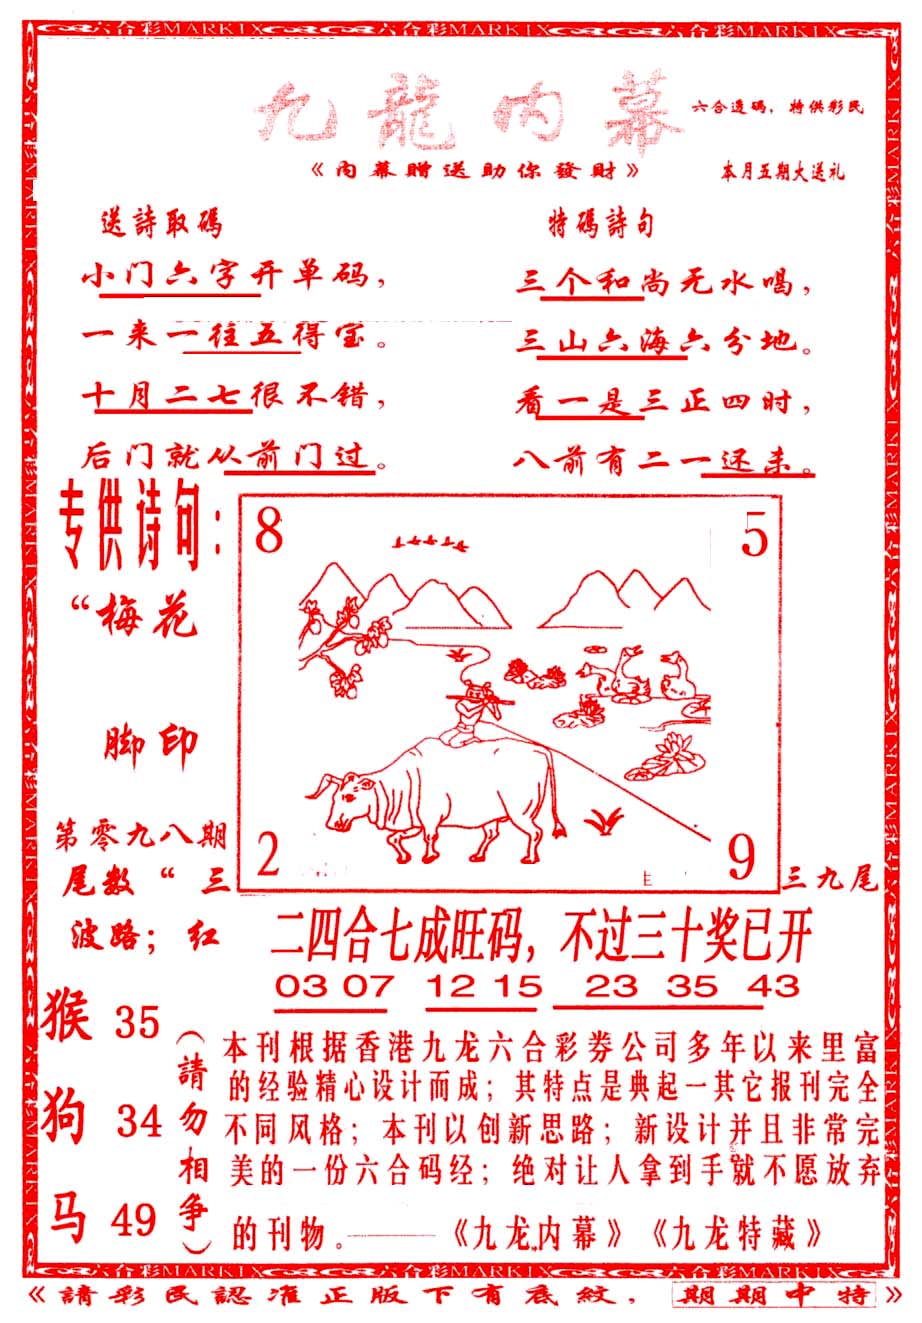 六合彩MARKIX 六合彩MARKIX 六合彩MARKIX
九龍内幕
六合透碼，特供彩民
《内幕贈送助你發財》
本月五期大送礼
送詩取碼
小门六字开单码，
一来一往五得宝。
十月二七很不错，
后门就从前门过。
特碼詩句
三个和尚无水喝，
三山六海六分地。
看一是三正四时，
八前有二一还未。
专供诗句：
“梅花
脚印
第零九八期
尾数“三
波路；红
8
5
2
9
三九尾
二四合七成旺码，不过三十奖已开
03 07 12 15 23 35 43
猴 35
狗 34
马 49
（請勿相争）
本刊根据香港九龙六合彩券公司多年以来里富
的经验精心设计而成；其特点是典起一其它报刊完全
不同风格；本刊以创新思路；新设计并且非常完
美的一份六合码经；绝对让人拿到手就不愿放弃
的刊物。——《九龙内幕》《九龙特藏》
六合彩MARKIX 六合彩MARKIX 六合彩MARKIX
《請彩民認准正版下有底紋，期期中特》